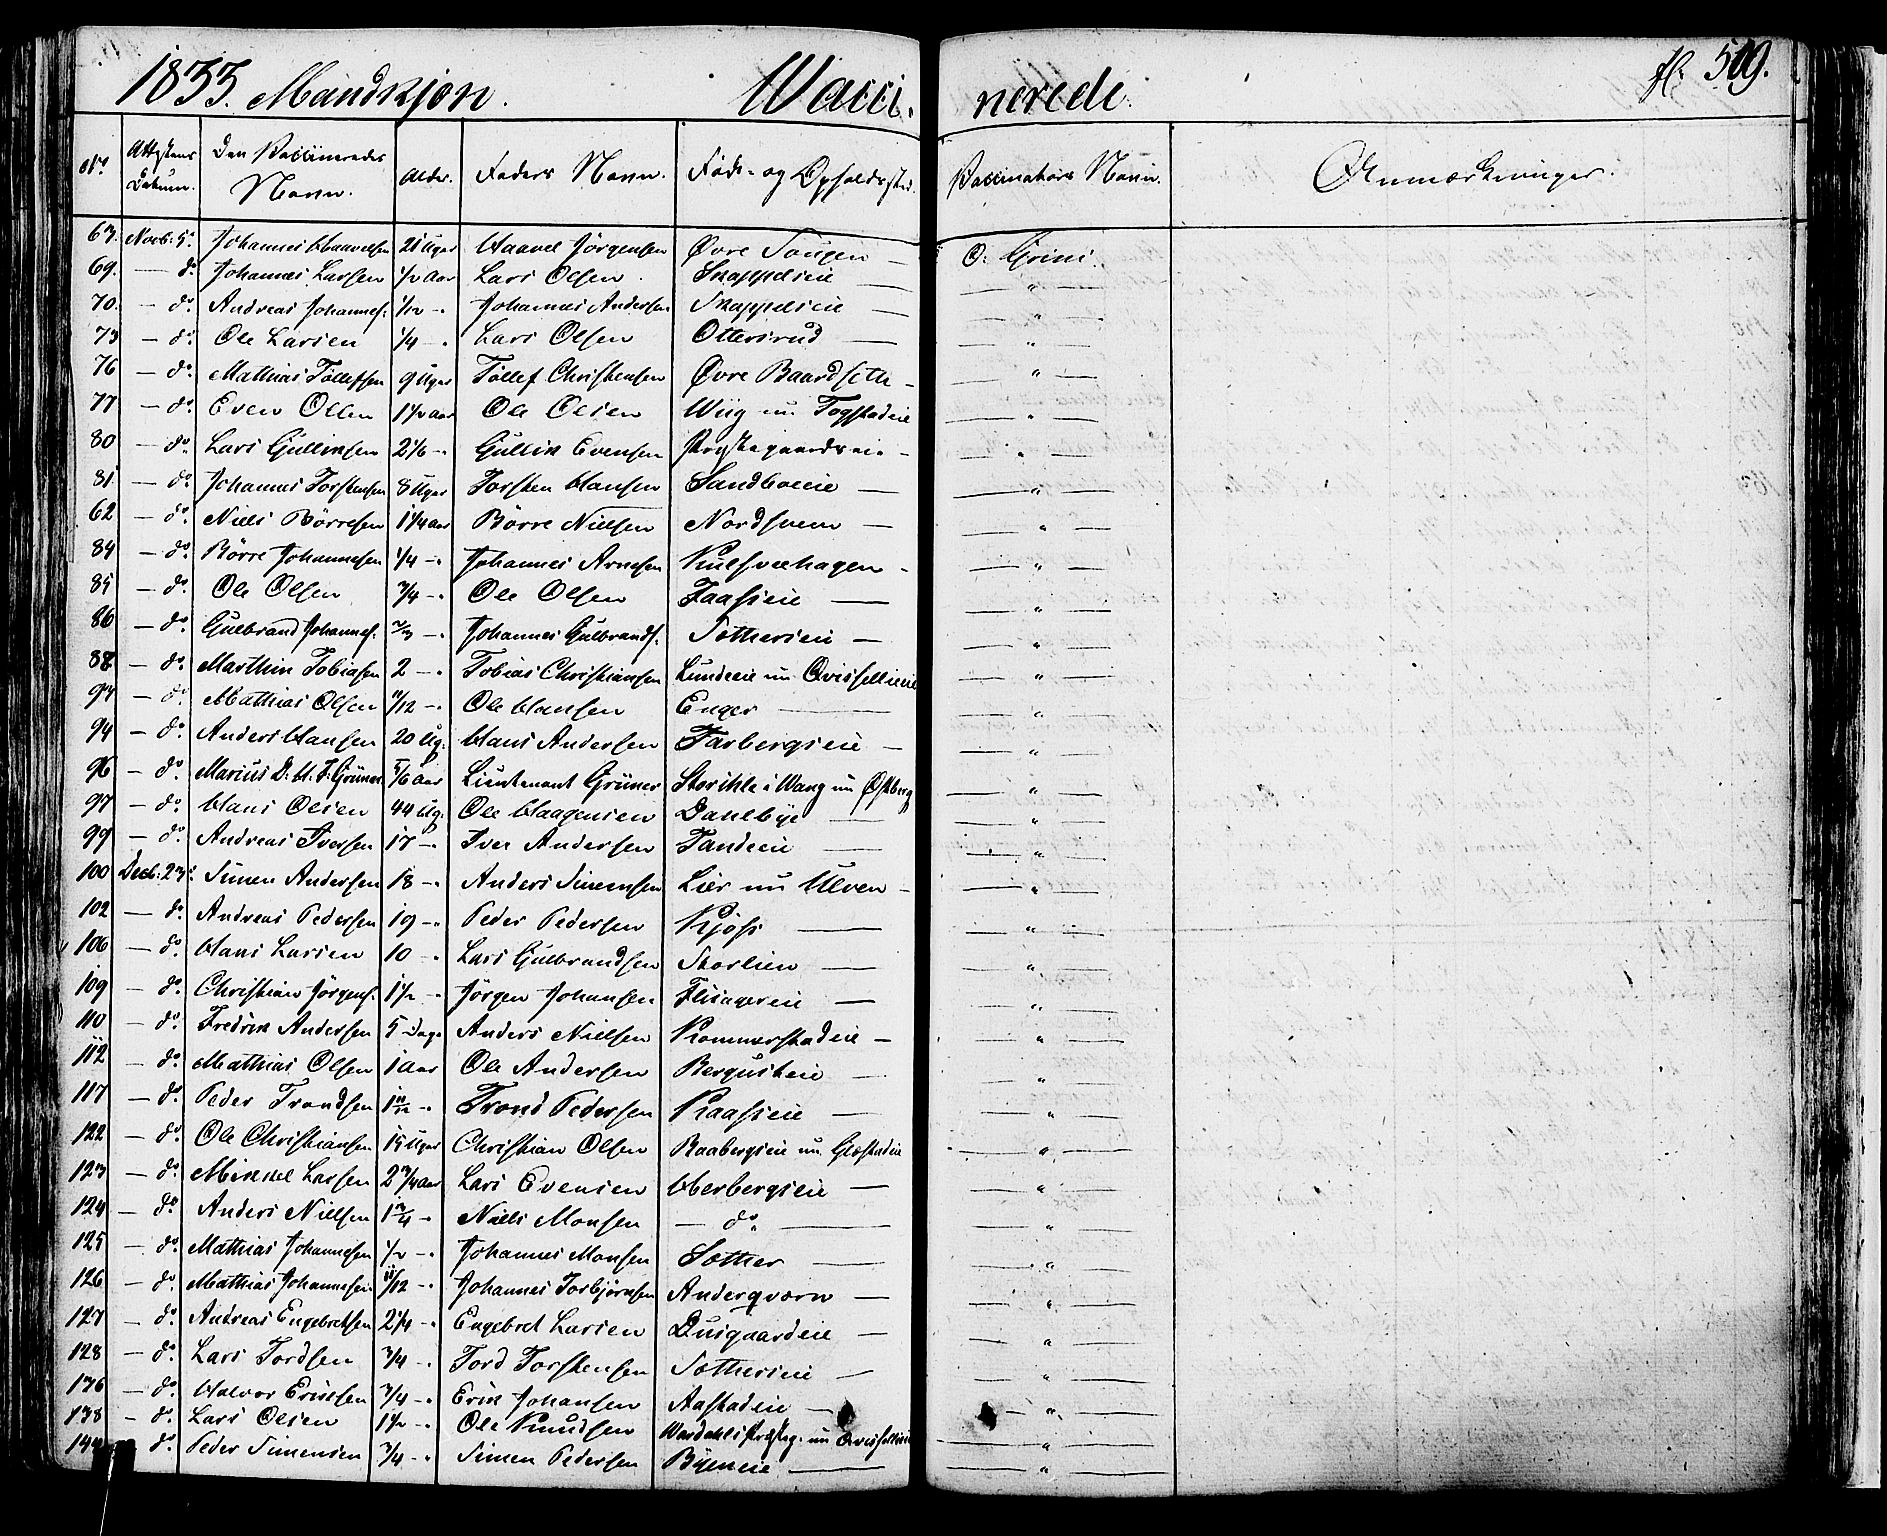 1833. Mandkjøn. Wacci. nerede. fl: 509.
No. Attestens Datum. Den Vaccineredes Navn. Alder. Faders Navn. Føde- og Opholdssted. Vaccinatørs Navn. Anmærkninger.
67. Novb: 5. Johannes Haavelsen 21 Uger Haavel Jørgensen Øvre Sougen — O: Grini.
69. — do. Johannes Larsen 1/2 Aar Lars Olsen. Snappeleie — — " —
70. — do. Andreas Johannes. 1/12 — Johannes Andersen Snappeleie — — " —
73 — do. Ole Larsen 1/4 — Lars Olsen Ottersrud — — " —
76 — do. Mathias Tollefsen 9 Uger Tollef Christensen Øvre Baardseth — — " —
77 — do. Even Olsen 1 1/2 aar Ole Olsen Wiig nu Fogstadeie — " —
80 — do. Lars Gullixsen 2 1/6 — Gullix Evensen Prestegaardseie — — " —
81 — do. Johannes Torstensen 8 Uger Torsten Hansen Sandboeie — — " —
62 — do. Niels Børresen 1 1/4 aar Børre Nielsen Nordsveen — — " —
84 — do. Børre Johannesen 1/4 — Johannes Arnesen Kulsvehagen — — " —
85 — do. Ole Olsen 3/4 — Ole Olsen Faaseie — — " —
86 — do. Gulbrand Johannes. 2/3 — Johannes Gulbrands. Sothereie — — " —
88 — do. Marthin Tobiasen 2 — Tobias Christiansen Lundeeie nu Qvisellieeie — " —
93 — do. Mathias Olsen 11/12 — Ole Hansen Enger — — " —
94 — do. Anders Hansen 20 Ug. Hans Andersen Farbergseie — — " —
96 — do. Marius D: H: F: Grüner 5/6 aar Lieutenant Grüner Storihle i Wang nu Østberg — " —
97 — do. Hans Olsen 44 Ug. Ole Haagensen Danebye — — " —
99 — do. Andreas Iversen 17 — Iver Andersen Tandeeie — — " —
100 Decb: 23. Simen Andersen 18 — Anders Simensen Lier nu Ulven — — " —
102 — do. Andreas Pedersen 19 — Peder Pedersen Kjøss — — " —
106 — do. Hans Larsen 10 — Lars Gulbrandsen Storlien — — " —
109 — do. Christian Jørgens. 1 1/2 — Jørgen Johansen Flisagereie — — " —
110 — do. Fredrik Andersen 5 Dage Anders Nielsen Kommerstadeie — — " —
112 — do. Mathias Olsen 1 Aar Ole Andersen Bergusteie — — " —
117 — do. Peder Trondsen 1 11/12 — Trond Pedersen Kaaseie — — " —
122 — do. Ole Christiansen 15 Uger Christian Olsen Raabergseie nu Glæstadeie — " —
123 — do. Mikkel Larsen 2 3/4 aar Lars Evensen Herbergseie — — " —
124 — do. Anders Nielsen 1 3/4 — Niels Monsen — do. — — " —
125 — do. Mathias Johannesen 1/2 — Johannes Monsen Sother — — " —
126 — do. Mathias Johannesen 11/12 — Johannes Torbjørnsen Anderqværn — — " —
127 — do. Andreas Engebretsen 2 1/4 — Engebret Larsen Dusgaardeie — — " —
128 — do. Lars Tordsen 3/4 — Tord Torstensen Sothereie — — " —
136 — do. Halvor Ericksen 3/4 — Erik Johansen Aastadeie — — " —
138 — do. Lars Olsen 1 1/2 — Ole Knudsen Wardahls Præsteg. nu Qvisellieeie — " —
144 — do. Peder Simensen 3/4 — Simen Pedersen Byeneie — — " —